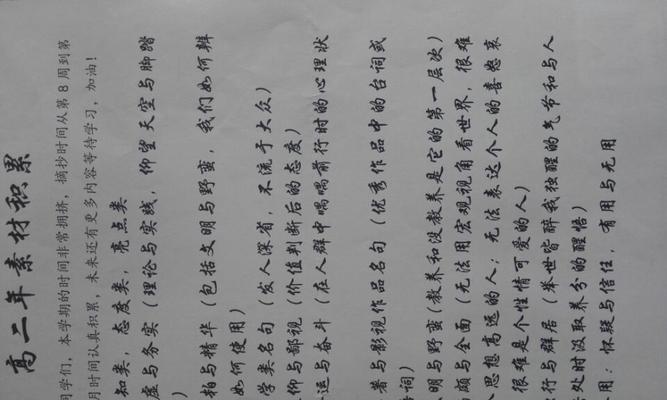 高二年素材积累
同学们，本学期的时间非常拥挤，摘抄时间从第 8 周到第
月时间认真积累，未来还有更多内容等待学习，加油！
知类，态度类，亮点类
虚与务实（理论与实践，仰望天空与脚踏
）
粕与精华（包括文明与野蛮，我们如何辨
如何使用）
学类名句（发人深省，不流于大众）
仰与鄙视（价值判断后的态度）
运与奋斗（在人群中喁喁前行时的心理状
著与影视作品名句（优秀作品中的台词或
词）
明与野蛮（教养和没教养是它的第一层次）
颇与全面（无法用宏观视角看世界，很难
思想高远的人；无法表达个人的喜怒哀
很难是个性情可爱的人）
行与群居（举世皆醉我独醒的气节和与人
处时汲取养分的醒悟）
用：怀疑与信任，有用与无用